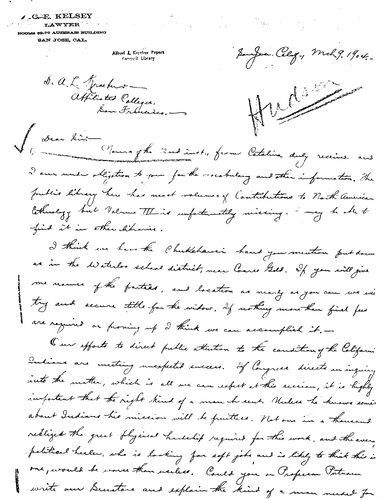 C. E. KELSEY
LAWYER
ROOMS 68-70 AUZERAIS BUILDING
SAN JOSE, CAL.
Alfred L. Kroeber Papers
Bancroft Library
San Jose, Calif., Mch 9, 1904.
Hudson
Dr. A. L. Kroeber
Affiliated Colleges,
San Francisco.
Dear Sir:
Yours of the 2nd inst., from Catalina duly received and
I am under obligation to you for the vocabulary and other information. The
public library here has most volumes of Contributions to North American
Ethnology but Volume III is unfortunately missing. may be able to
find it in other libraries.
I think we have the Chukchansi band you mention put down
as in the Waterloo school district, near Coarse Gold. If you will give
me names of the parties, and location as nearly as you can we will
try and secure title for the widow. If nothing more than final fees
are required or proving up I think we can accomplish it.
Our efforts to direct public attention to the condition of the California
Indians are meeting unexpected success. If Congress directs an inquiry
into the matter, which is all we can expect at this session, it is highly
important that the right kind of a man be sent. Unless he knows something
about Indians his mission will be fruitless. Not one in a thousand
realizes the great physical hardship required for this work, and the average
political heeler, who is looking for soft jobs and is likely to think this is
one, would be worse than useless. Could you or Professor Putnam
write our Senators and explain the kind of man needed for